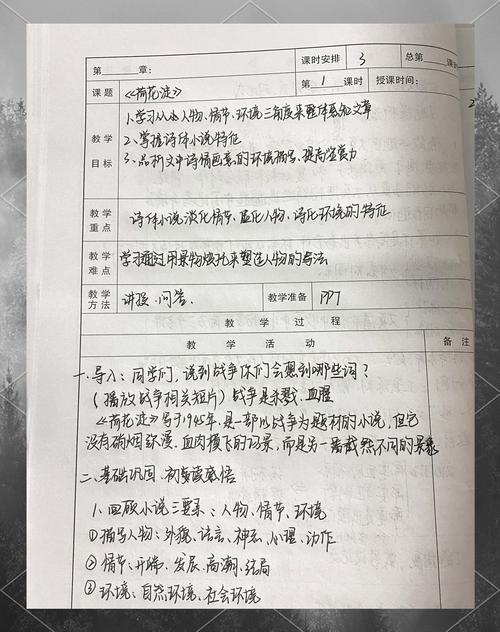 第 章: 课时安排 3 总第 课时
课题 《荷花淀》 第 1 课时 授课时间:
教学目标 1.学习从从人物、情节、环境三角度来整体感知文章
2.掌握诗体小说特征
3.品析文中诗情画意的环境描写,提高鉴赏力
教学重点 诗体小说淡化情节、虚化人物、诗化环境的特征
教学难点 学习通过用景物烘托来塑造人物的写法
教学方法 讲授、问答、 教学准备 PPT
教 学 过 程
教 学 活 动 备 注
一.导入:同学们,说到战争你们会想到哪些词?
(播放战争相关短片)战争是杀戮、血腥
《荷花淀》写于1945年,是一部以战争为题材的小说,但它
没有硝烟弥漫、血肉模飞的场景,而是另一番截然不同的景象
二、基础巩固、初步感悟
1、回顾小说三要素:人物、情节、环境
①描写人物:外貌、语言、神态、心理、动作
②情节:开端、发展、高潮、结局
③环境:自然环境、社会环境